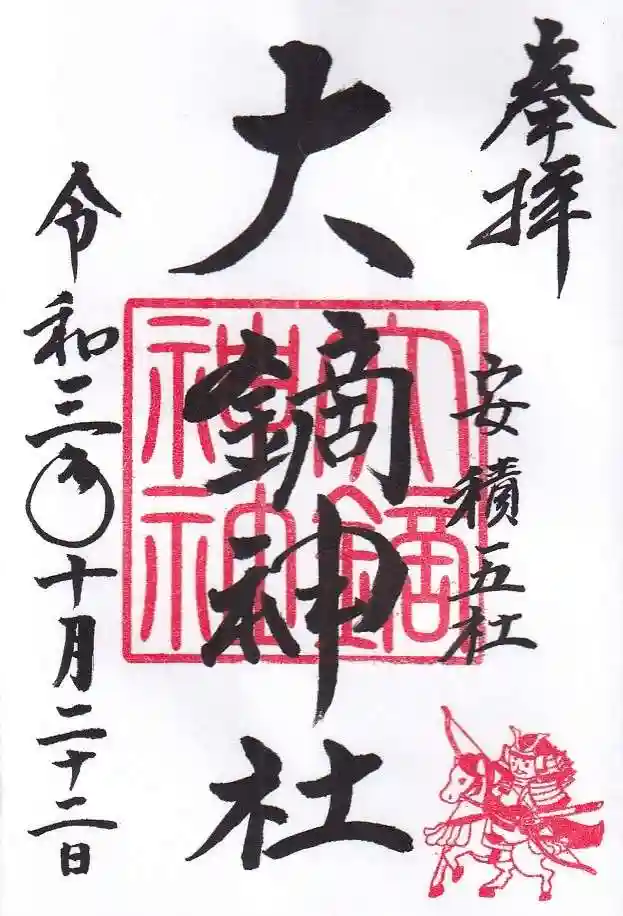 奉拝
安積三五社
大鏑神社
大鏑
神社
令和三年十月二十二日